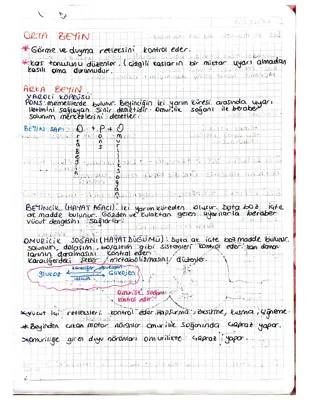 ORTA BEYİN
* Görme ve duyma refleksini kontrol eder.
* Kas tonusunu düzenler. (Çizgili kasların bir miktar uyarı almadan kasılı olma durumudur.
ARKA BEYİN
VAROLİ KÖPRÜSÜ
PONS: memelilerde bulunur. Beyinciğin iki yarım küresi arasında uyarı iletimini sağlayan sinir demetidir. Omurilik soğanı ile beraber solunum merkezlerini denetler.
BEYİN SAPI: O + P + O
Orta Beyin
Pons
Omurilik Soğanı
BEYİNCİK (HAYAT AĞACI): İki yarım küreden oluşur. Dışta boz, içte ak madde bulunur. Gözden ve kulaktan gelen uyarılarla beraber vücut dengesini sağlar.
OMURİLİK SOĞANI (HAYAT DÜĞÜMÜ): Dışta ak, içte boz madde bulunur.
solunum, dolaşım, boşaltım gibi sistemleri kontrol eder. kan damarlarının daralmasını kontrol eder.
karaciğerdeki şeker metabolizmasını düzenler.
glikoz
glikojen
Omurilik soğanı kontrol eder.
* Vücut içi refleksleri kontrol eder. Hapşırma, öksürme, kusma, çiğneme.
* Beyinden çıkan motor nöronlar omurilik soğanında çapraz yapar.
* Omuriliğe giren duyu nöronları omurilikte çapraz yapar.